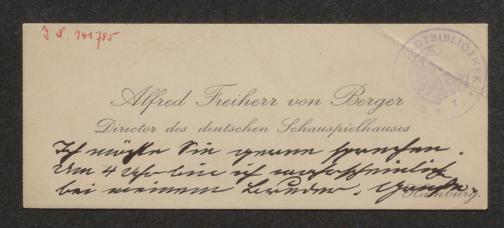 J. N. 141.785
STADTBIBLIOTHEK
Alfred Freiherr von Berger
Director des deutschen Schauspielhauses
Ich möchte Sie gerne sprechen.
Um 4 Uhr bin ich wahrscheinlich
bei meinem Bruder.
Hamburg.